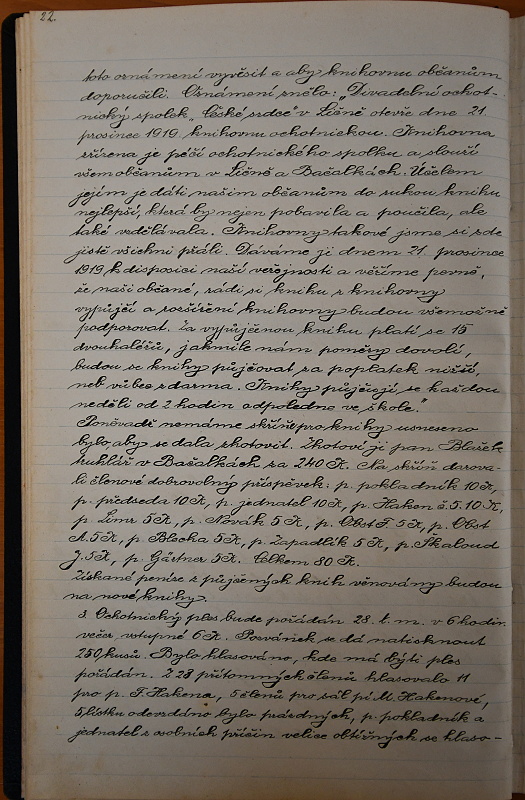 22.
toto oznámení vyvěsit a aby knihovnu občanům
doporučili. Oznámení znělo: „Divadelní ochot-
nický spolek „České srdce" v Ličně otevře dne 21.
prosince 1919 knihovnu ochotnickou. Knihovna
zřízena je péčí ochotnického spolku a slouží
všem občanům v Ličně a Bačalkách. Účelem
jejím je dáti našim občanům do rukou knihu
nejlepší, která by nejen pobavila a poučila, ale
také vzdělávala. Knihovny takové jsme si zde
jistě všichni přáli. Dáváme ji dnem 21. prosince
1919 k disposici naší veřejnosti a věříme pevně,
že naši občané, rádi si knihu z knihovny
vypůjčí a rozšíření knihovny budou všemožně
podporovat. Za vypůjčenou knihu platí se 15
dvouhaléřů, jakmile nám poměry dovolí,
budou se knihy půjčovat za poplatek nižší,
neb vůbec zdarma. Knihy půjčují se každou
neděli od 2 hodin odpoledne ve škole."
Poněvadž nemáme skříně pro knihy usneseno
bylo, aby se dala zhotovit. Zhotoví ji pan Blažek
truhlář v Bačalkách za 240 K. Na skříň darova-
li členové dobrovolný příspěvek: p. pokladník 10 K,
p. předseda 10 K, p. jednatel 10 K, p. Haken č. 5. 10 K,
p. Limr 5 K, p. Novák 5 K, p. Obst F. 5 K, p. Obst
A. 5 K, p. Blecha 5 K, p. Zapadlík 5 K, p. Skaloud
J. 5 K, p. Gärtner 5 K. Celkem 80 K.
Získané peníze z půjčených knih věnovány budou
na nové knihy.
3. Ochotnický ples bude pořádán 28. t. m. v 6 hodin
večer, vstupné 6 K. Pozvánek se dá natisknout
250 kusů. Bylo hlasováno, kde má býti ples
pořádán. Z 28 přítomných členů hlasovalo 11
pro p. F. Hakena, 5 členů pro sál pí M. Hakenové,
5 lístků odevzdáno bylo prázdných, p. pokladník a
jednatel z osobních příčin velice obtížných se hlaso-